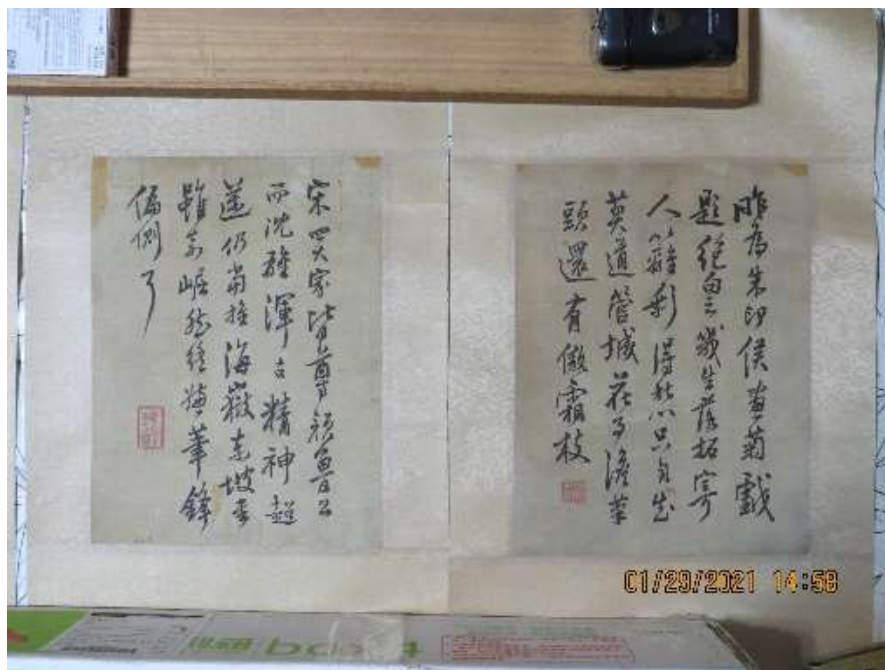 昨為朱侯畫菊戲
題絕句云幾生落拓寄
人籬彩得秋心只自知
莫道管城花事澹筆
頭還有傲霜枝
宋四大家皆尊顏魯公
而沈雄渾古精神超
邁仍當推海嶽東坡書
雖奇崛然終嫌筆鋒
偏側了
01/29/2021 14:58